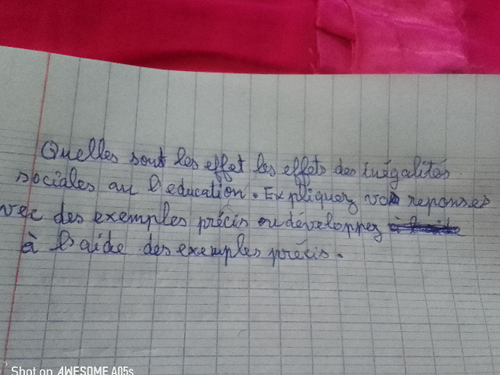 Quelles sont les effet les effets des inégalités
sociales au l'education. Expliquez vos reponses
vec des exemples précis ou développez
à l'aide des exemples précis.
Shot on AWESOME A05s